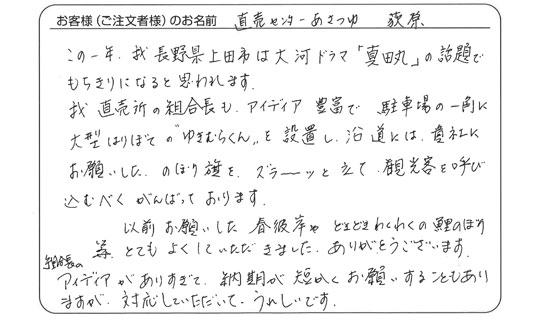 お客様（ご注文者様）のお名前　直売センターあさつゆ　荻原
この一年、我長野県上田市は大河ドラマ「真田丸」の話題で
もちきりになると思われます。
我直売所の組合長も、アイディア豊富で駐車場の一角に
大型はりぼての"ゆきむらくん"を設置し、沿道には、貴社に
お願いした、のぼり旗を、ズラーーッと立て、観光客を呼び
込むべくがんばっております。
以前お願いした春彼岸やどきどきわくわくの鯉のぼり
等、とてもよくしていただきました、ありがとうございます。
組合長の
アイディアがありすぎて、納期が短かくお願いすることもあり
ますが、対応していただいて、うれしいです。